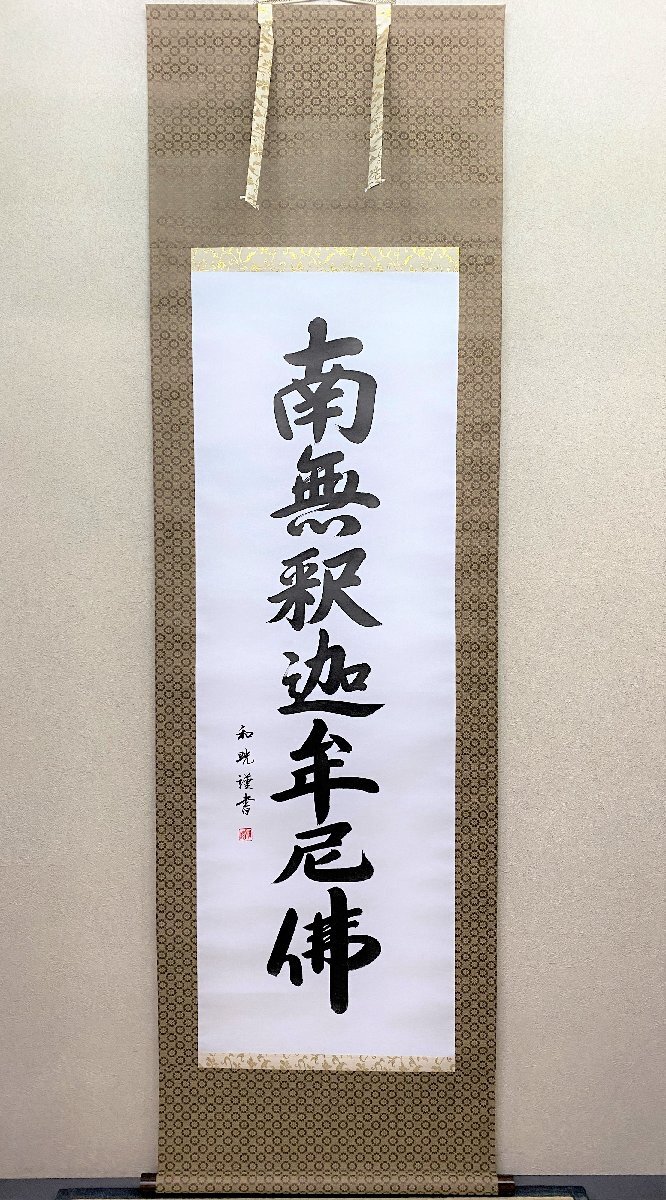 南無釈迦牟尼佛
和晄謹書